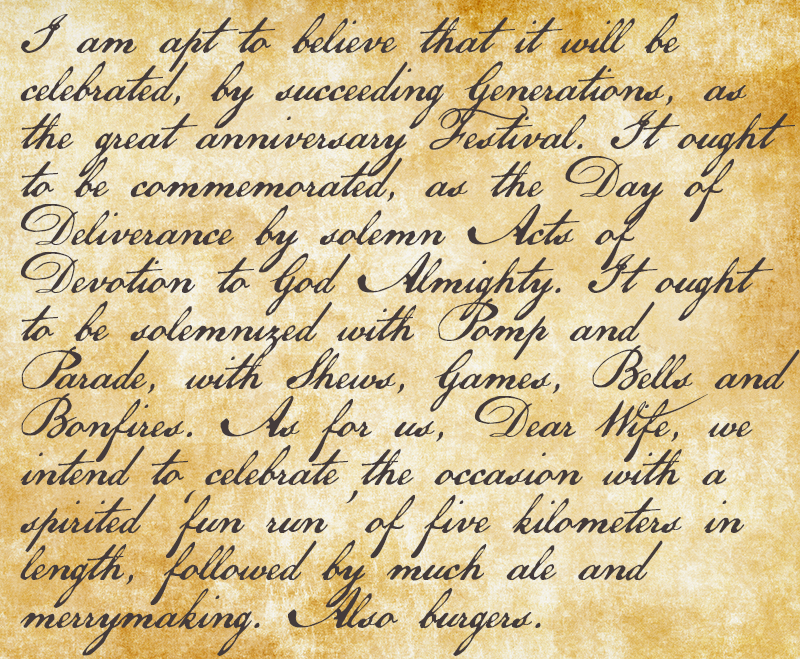 I am apt to believe that it will be
celebrated, by succeeding Generations, as
the great anniversary Festival. It ought
to be commemorated, as the Day of
Deliverance by solemn Acts of
Devotion to God Almighty. It ought
to be solemnized with Pomp and
Parade, with Shews, Games, Bells and
Bonfires. As for us, Dear Wife, we
intend to celebrate the occasion with a
spirited 'fun run' of five kilometers in
length, followed by much ale and
merrymaking. Also burgers.